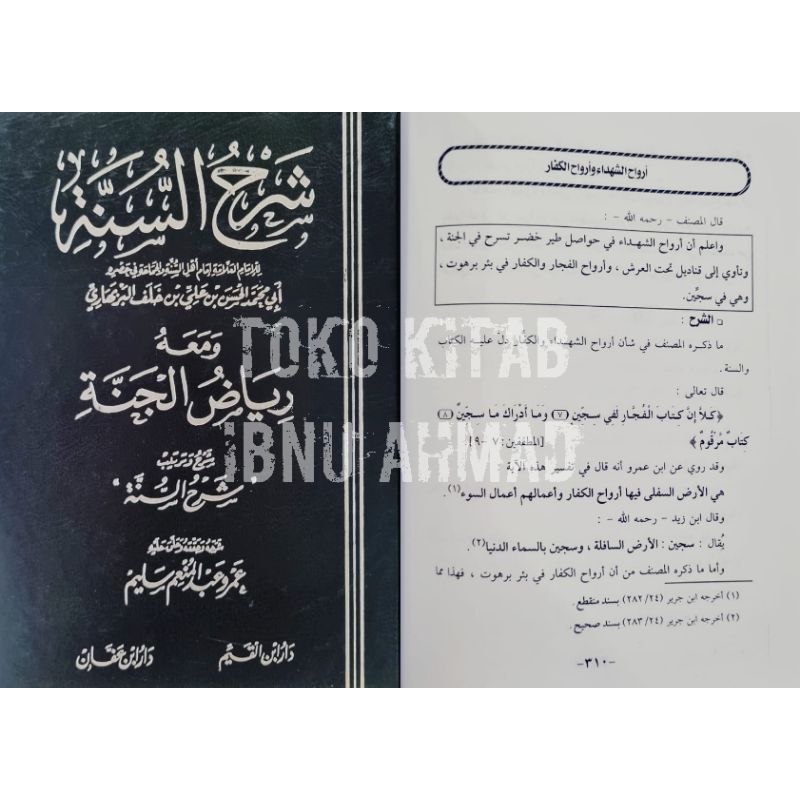 شَرْحُ السُّنَّة
للإمام العلامة إمام أهل السنة والجماعة في عصره
أبي محمد الحسن بن علي بن خلف البربهاري
وَمَعَهُ
رِيَاضُ الجَنَّةِ
شرح وترتيب
"شرح السُّنَّة"
عمرو عبد المنعم سليم
دار ابن القيم
دار ابن عفان
أرواح الشهداء وأرواح الكفار
قال المصنف - رحمه الله - :
واعلم أن أرواح الشهداء في حواصل طير خضر تسرح في الجنة ،
وتأوي إلى قناديل تحت العرش ، وأرواح الفجار والكفار في بئر برهوت ،
وهي في سجِّين.
□ الشرح :
ما ذكره المصنف في شأن أرواح الشهداء والكفَّار دلَّ عليه الكتاب
والسنة .
قال تعالى :
﴿كَلاَّ إِنَّ كِتَابَ الْفُجَّارِ لَفِي سِجِّينٍ (٧) وَمَا أَدْرَاكَ مَا سِجِّينٌ (٨)
كِتَابٌ مَّرْقُومٌ﴾ [المطففين: ٧ -٩]
وقد روي عن ابن عمرو أنه قال في تفسير هذه الآية
هي الأرض السفلى فيها أرواح الكفار وأعمالهم أعمال السوء(١).
وقال ابن زيد - رحمه الله - :
يُقال : سجين : الأرض السافلة ، وسجين بالسماء الدنيا(٢).
وأما ما ذكره المصنف من أن أرواح الكفار في بئر برهوت ، فهذا مما
(١) أخرجه ابن جرير (٢٨٢/٢٤) بسند منقطع .
(٢) أخرجه ابن جرير (٢٨٣/٢٤) بسند صحيح .
-٣١٠-
TOKO KITAB
IBNU AHMAD